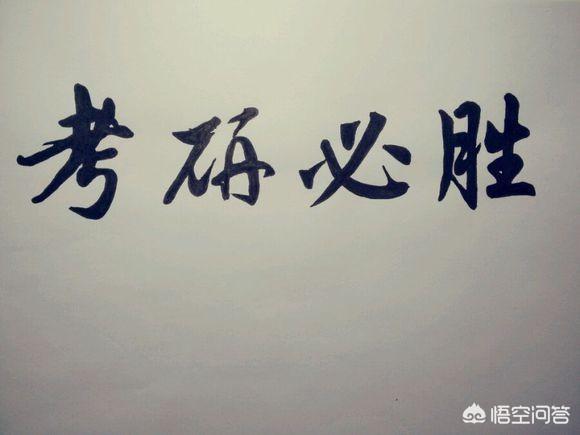 考研必胜
悟空问答